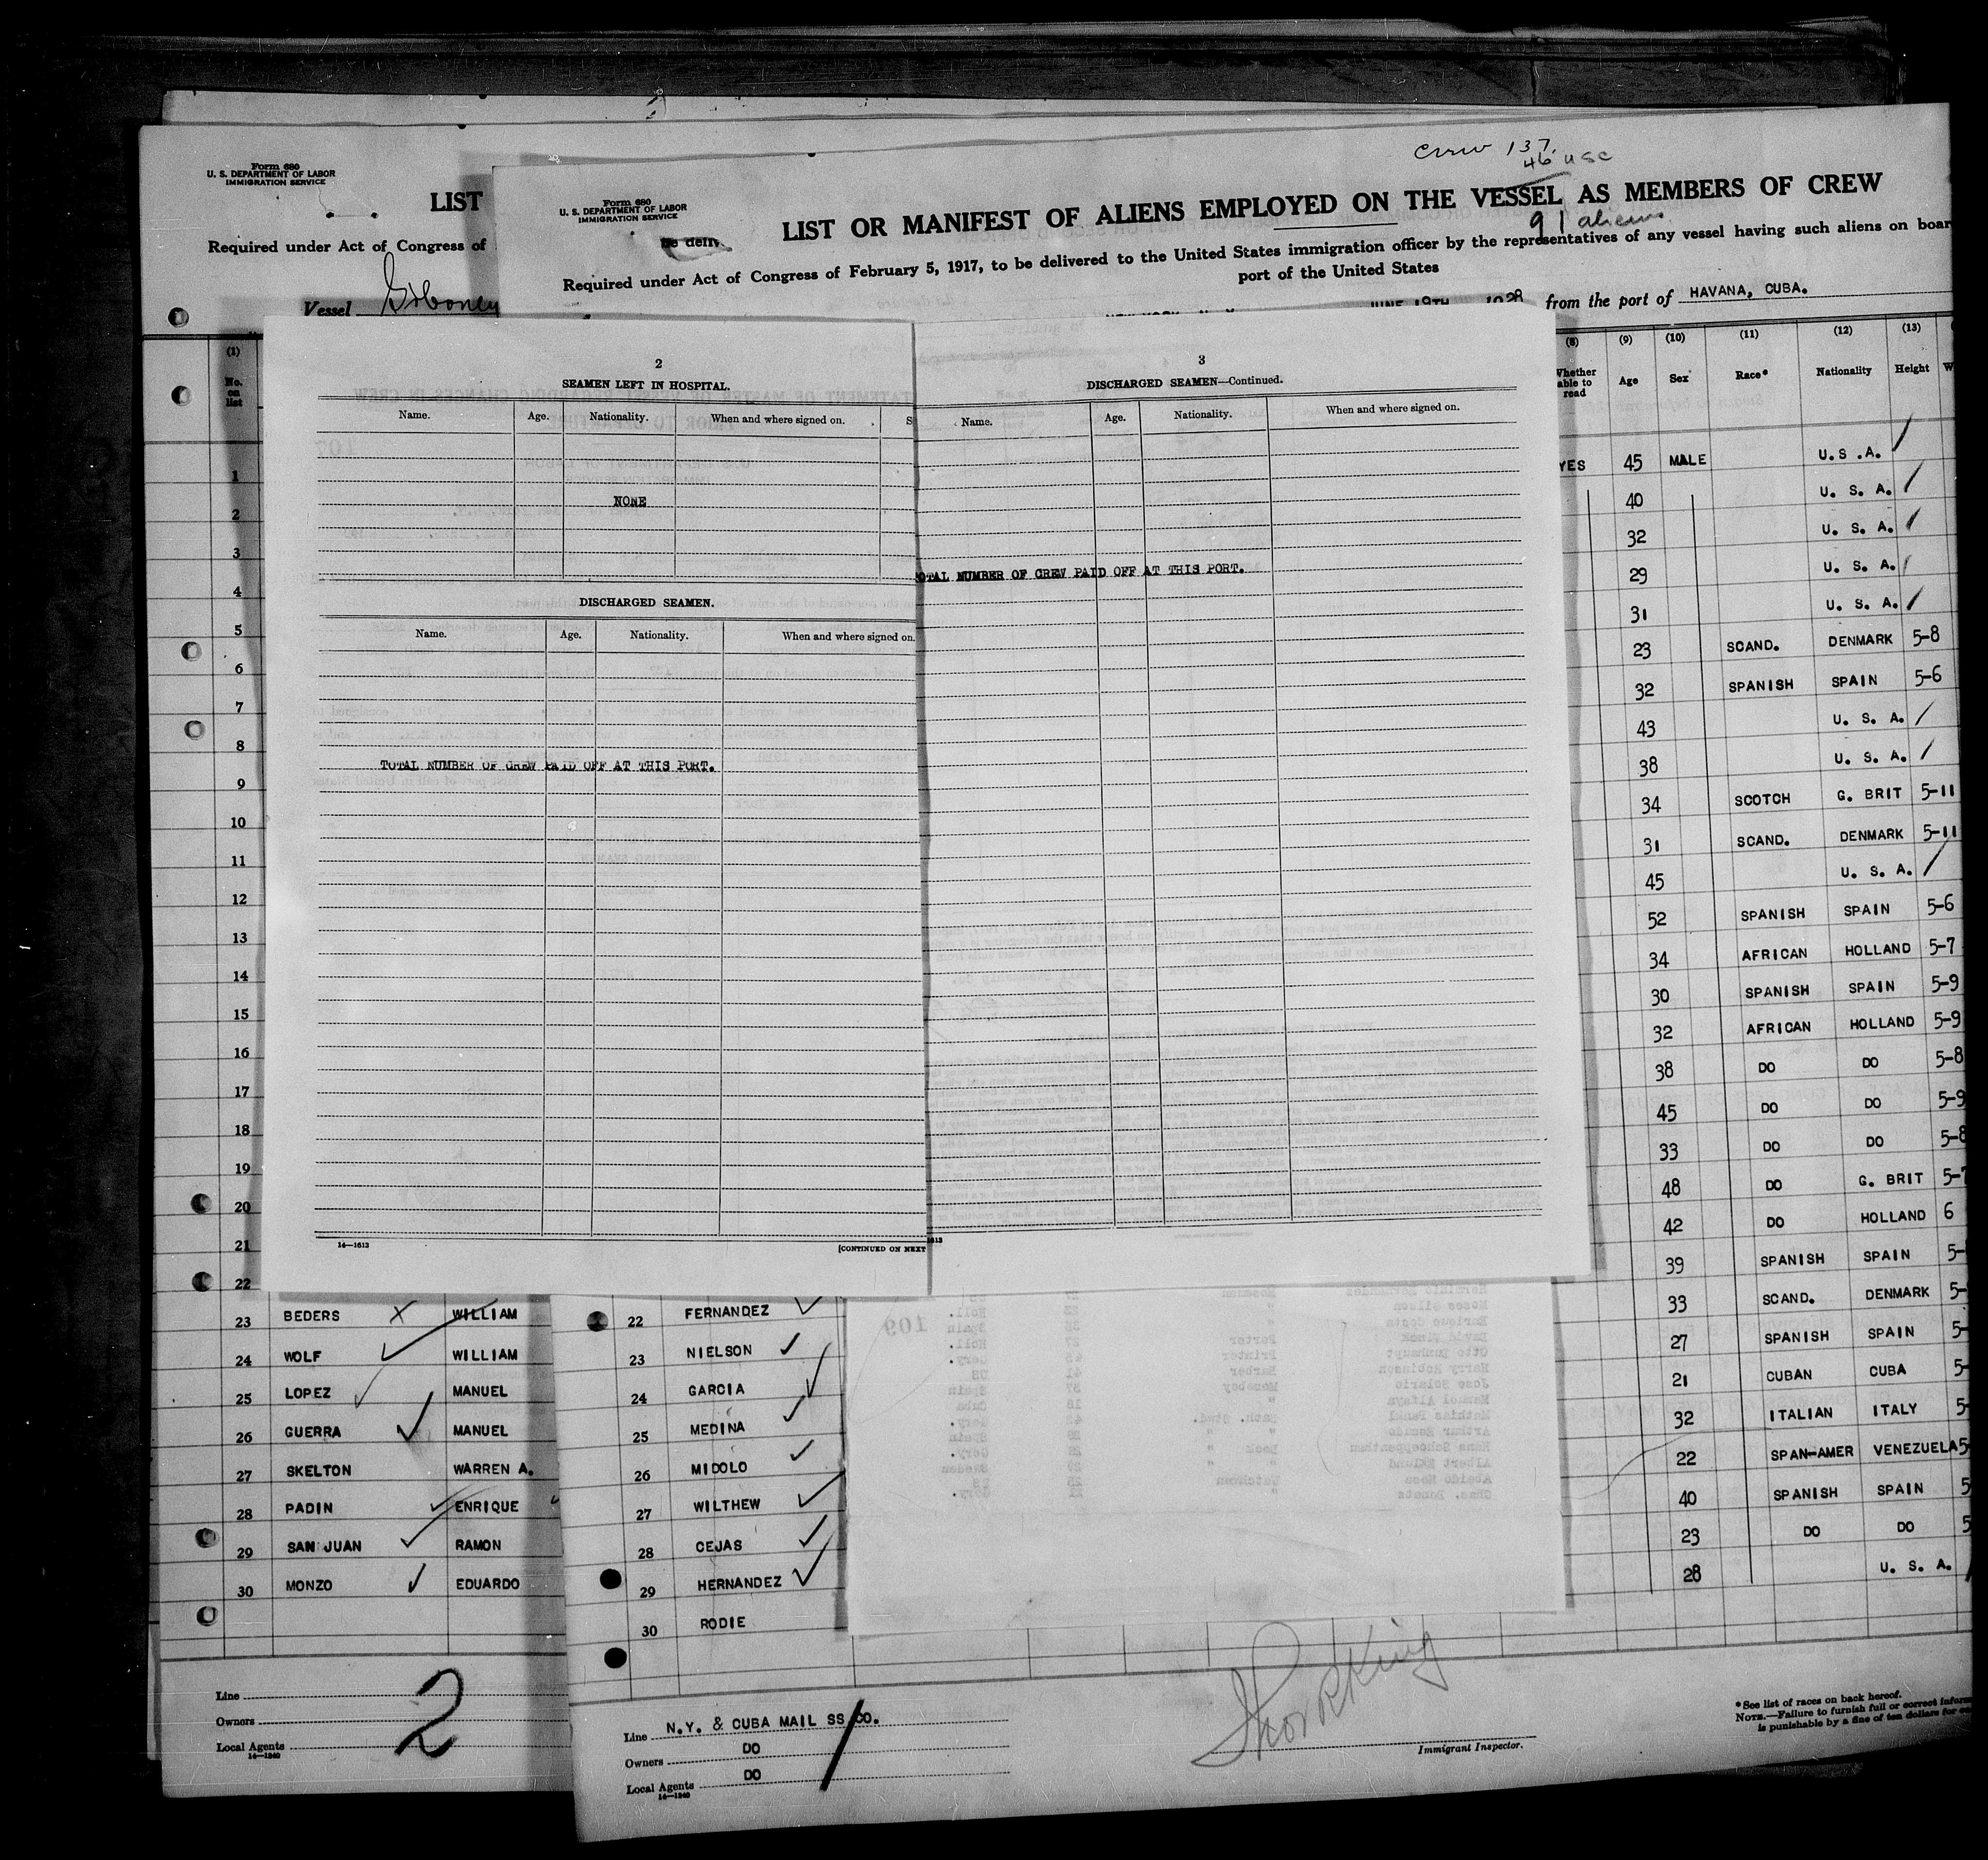 Form 680
U. S. DEPARTMENT OF LABOR
IMMIGRATION SERVICE
LIST
Required under Act of Congress of
Vessel Siboney
(1)
No. on list
1
2
3
4
5
6
7
8
9
10
11
12
13
14
15
16
17
18
19
20
21
22
23 BEDERS WILLIAM
24 WOLF WILLIAM
25 LOPEZ MANUEL
26 GUERRA MANUEL
27 SKELTON WARREN A.
28 PADIN ENRIQUE
29 SAN JUAN RAMON
30 MONZO EDUARDO
Line
Owners
Local Agents
14—1240
2
Crew 137.
46 USC
91 aliens
Form 680
U. S. DEPARTMENT OF LABOR
IMMIGRATION SERVICE
LIST OR MANIFEST OF ALIENS EMPLOYED ON THE VESSEL AS MEMBERS OF CREW
Required under Act of Congress of February 5, 1917, to be delivered to the United States immigration officer by the representatives of any vessel having such aliens on boar
port of the United States
JUNE 19TH 1928 from the port of HAVANA, CUBA.
(8) (9) (10) (11) (12) (13)
Whether able to read Age Sex Race* Nationality Height W
YES 45 MALE U. S. A.
40 U. S. A.
32 U. S. A.
29 U. S. A.
31 U. S. A.
23 SCAND. DENMARK 5-8
32 SPANISH SPAIN 5-6
43 U. S. A.
38 U. S. A.
34 SCOTCH G. BRIT 5-11
31 SCAND. DENMARK 5-11
45 U. S. A.
52 SPANISH SPAIN 5-6
34 AFRICAN HOLLAND 5-7
30 SPANISH SPAIN 5-9
32 AFRICAN HOLLAND 5-9
38 DO DO 5-8
45 DO DO 5-9
33 DO DO 5-8
48 DO G. BRIT 5-7
42 DO HOLLAND 6
39 SPANISH SPAIN 5-
33 SCAND. DENMARK 5-
27 SPANISH SPAIN 5-
21 CUBAN CUBA 5-
32 ITALIAN ITALY 5-
22 SPAN-AMER VENEZUELA 5-
40 SPANISH SPAIN 5
23 DO DO 5
28 U. S. A.
2
SEAMEN LEFT IN HOSPITAL.
Name. Age. Nationality. When and where signed on. S
NONE
DISCHARGED SEAMEN.
Name. Age. Nationality. When and where signed on.
TOTAL NUMBER OF CREW PAID OFF AT THIS PORT.
14—1613
[CONTINUED ON NEXT
3
DISCHARGED SEAMEN—Continued.
Name. Age. Nationality. When and where signed on.
OTAL NUMBER OF CREW PAID OFF AT THIS PORT.
1613
22 FERNANDEZ
23 NIELSON
24 GARCIA
25 MEDINA
26 MIDOLO
27 WILTHEW
28 CEJAS
29 HERNANDEZ
30 RODIE
Line N.Y. & CUBA MAIL SS CO.
Owners DO
Local Agents DO
14—1240
Immigrant Inspector.
*See list of races on back hereof.
NOTE.—Failure to furnish full or correct inform
is punishable by a fine of ten dollars for